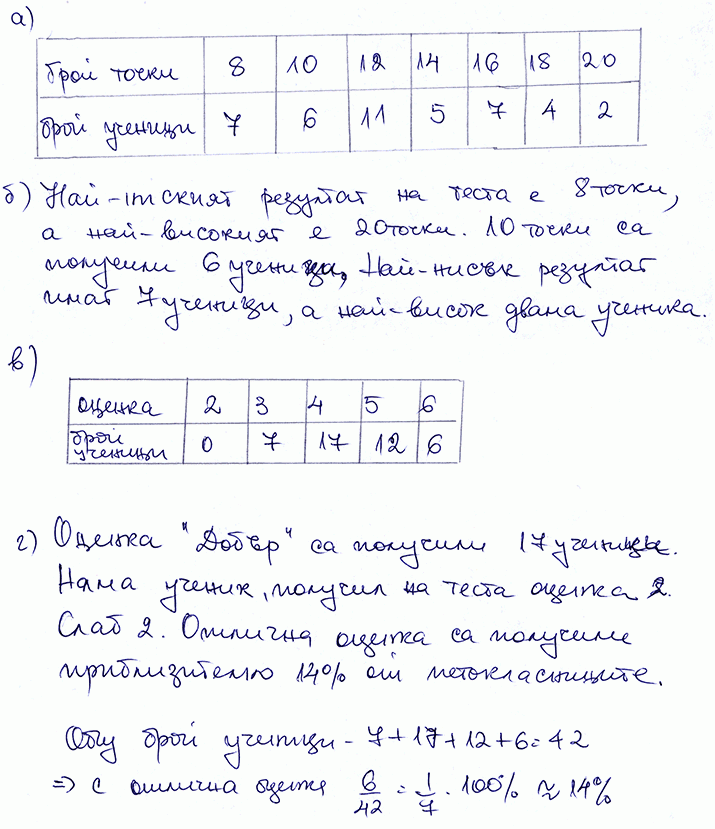 а)
брой точки 8 10 12 14 16 18 20
брой ученици 7 6 11 5 7 4 2
б) Най-ниският резултат на теста е 8 точки,
а най-високият е 20 точки. 10 точки са
получили 6 ученици, Най-нисък резултат
имат 7 ученици, а най-висок двама ученика.
в)
оценка 2 3 4 5 6
брой ученици 0 7 17 12 6
г) Оценка "Добър" са получили 17 ученици.
Няма ученик, получил на теста оценка 2.
Слаб 2. Отлична оценка са получили
приблизително 14% от петокласниците.
Общ брой ученици - 7+17+12+6=42
=> с отлична оценка 6/42 = 1/7 . 100% ≈ 14%